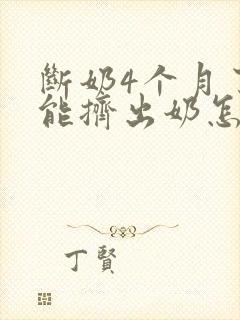 斷奶4个月
能擠出奶怎
丁賢